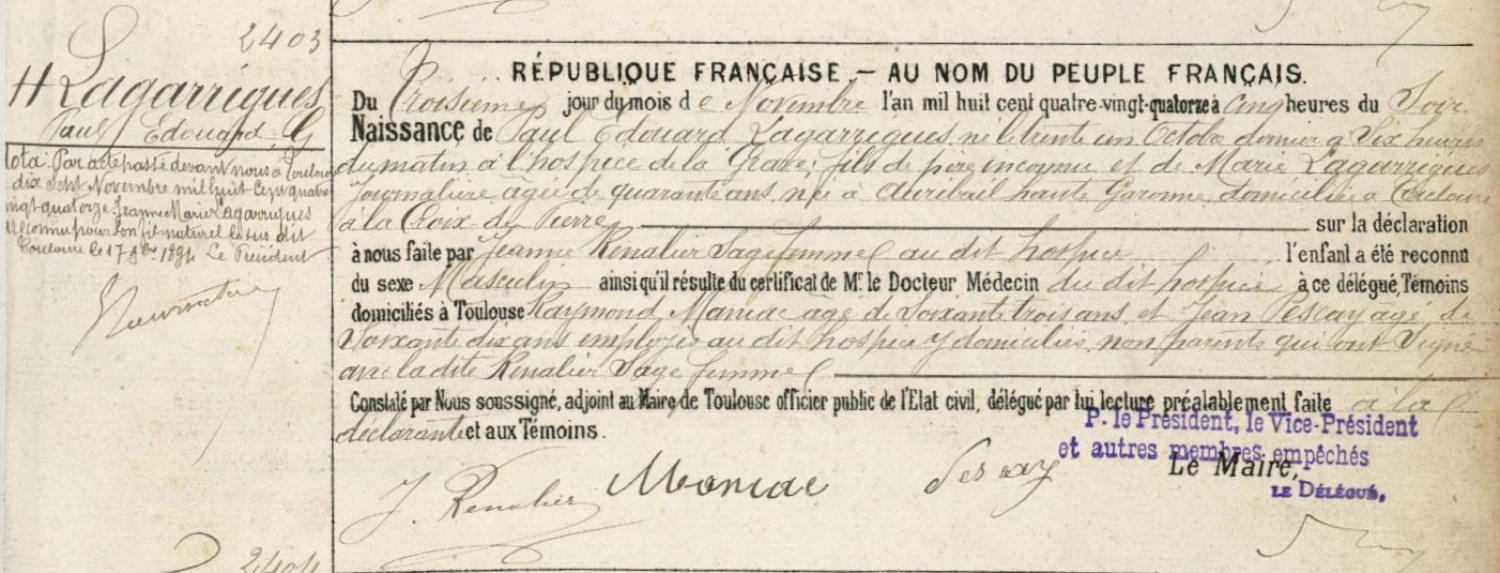 2403
H Lagarrigues
Paul Edouard, G
Nota: Par acte passé devant nous à Toulouse
dix Sept Novembre mil huit Cent quatre
vingt-quatorze Jeanne Marie Lagarrigues
a reconnu pour son fils naturel le sus dit
Toulouse le 17 9bre 1894 Le Président
RÉPUBLIQUE FRANÇAISE — AU NOM DU PEUPLE FRANÇAIS.
Du Troisième jour du mois de Novembre l'an mil huit cent quatre-vingt-quatorze à Cinq heures du Soir
Naissance de Paul Edouard Lagarrigues né le trente un Octobre dernier à Six heures
du matin à l'hospice de la Grave; fils de père inconnu et de Marie Lagarrigues
Journalière agée de quarante ans, née à Auribail haute Garonne, domiciliée à Toulouse
à la Croix de Pierre sur la déclaration
à nous faite par Jeanne Renalier Sage femme au dit hospice l'enfant a été reconnu
du sexe Masculin ainsi qu'il résulte du certificat de Mr. le Docteur Médecin du dit hospice à ce délégué, Témoins
domiciliés à Toulouse Raymond Maniac agé de Soixante trois ans, et Jean Pescay agé de
Soixante dix ans employés au dit hospice y domiciliés, non parents qui ont Signé
avec la dite Renalier Sage femme
Constaté par Nous soussigné, adjoint au Maire de Toulouse officier public de l'Etat civil, délégué par lui, lecture préalablement faite à la
déclarante et aux Témoins.
P. le Président, le Vice-Président
et autres membres empêchés
Le Maire,
LE DÉLÉGUÉ,
J. Renalier Maniac Pescay
2404